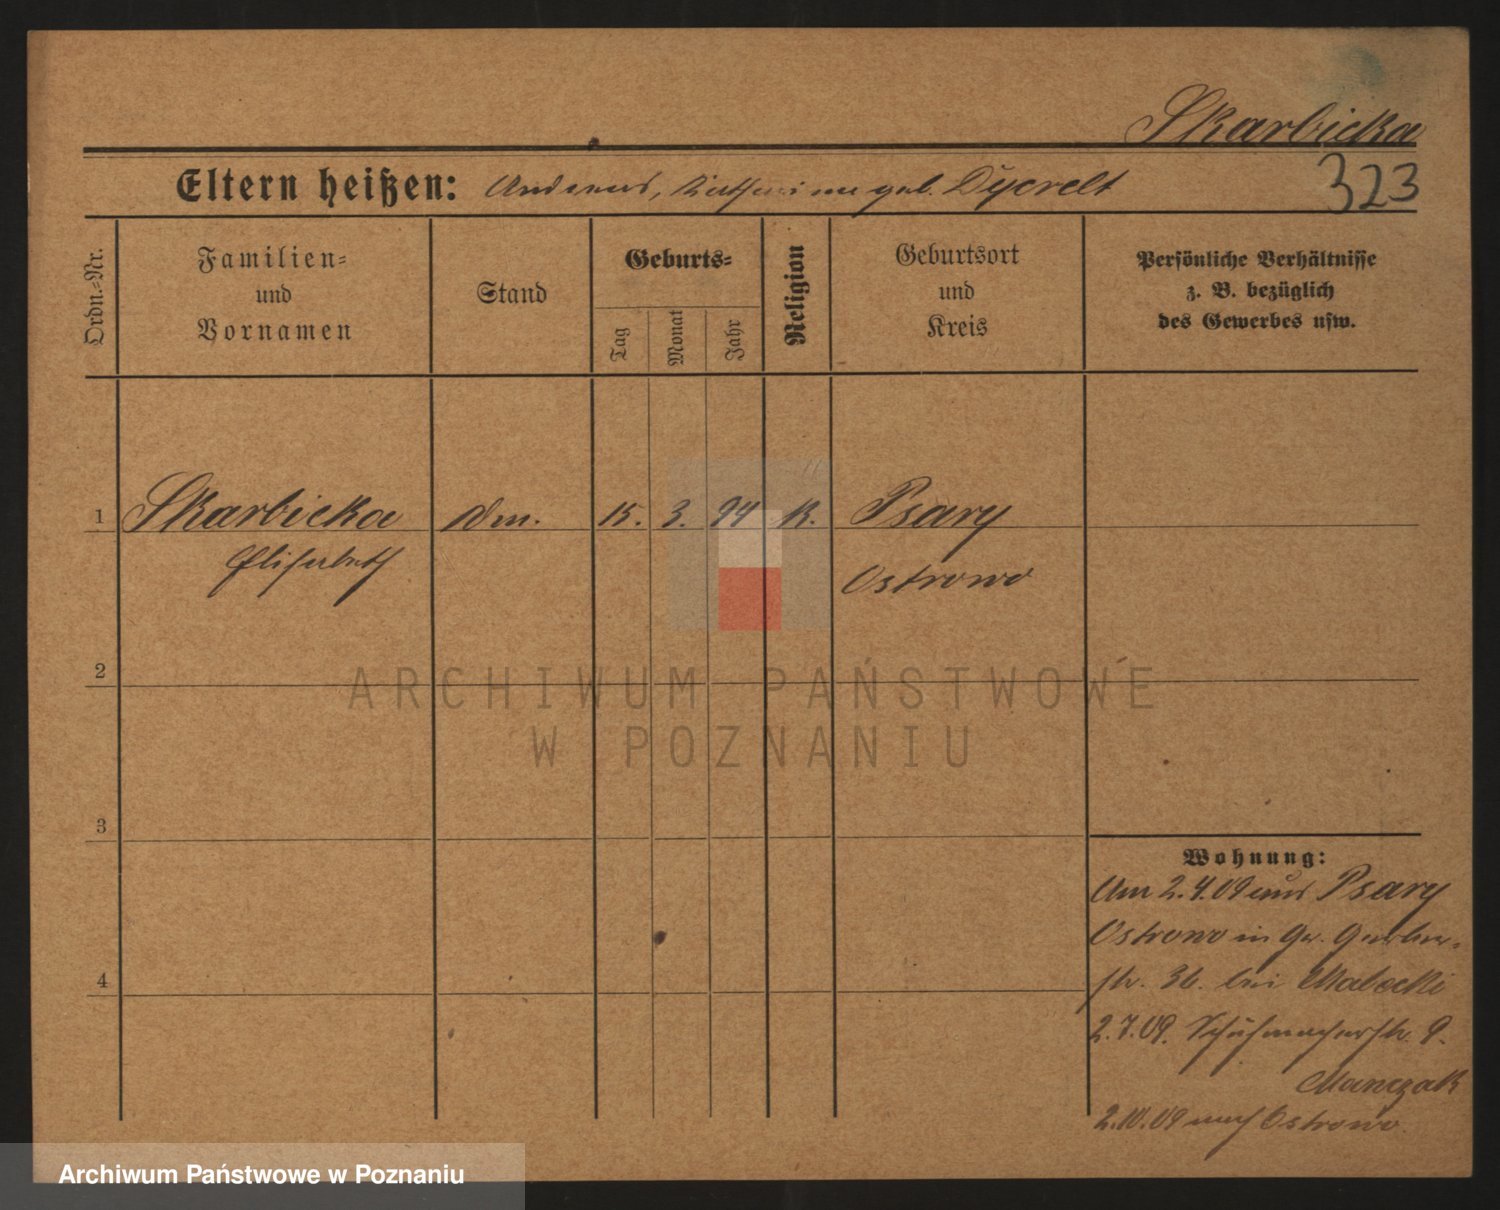 Skarbicka
323
Eltern heißen: Andreas, Katharina geb. Dycvelt
Ordn.-Nr.
Familien-
und
Vornamen
Stand
Geburts-
Tag
Monat
Jahr
Religion
Geburtsort
und
Kreis
Persönliche Verhältnisse
z. B. bezüglich
des Gewerbes usw.
1 Skarbicka Dm. 15. 3. 94 k. Psary
Elisabeth Ostrowo
2
3
4
Wohnung:
Am 2.4.09 aus Psary
Ostrowo in Gr. Gerber-
str. 36. bei Malecki
2.7.09. Schuhmacherstr. 9.
Marczak
2.10.09 nach Ostrowo.
ARCHIWUM PAŃSTWOWE
W POZNANIU
Archiwum Państwowe w Poznaniu